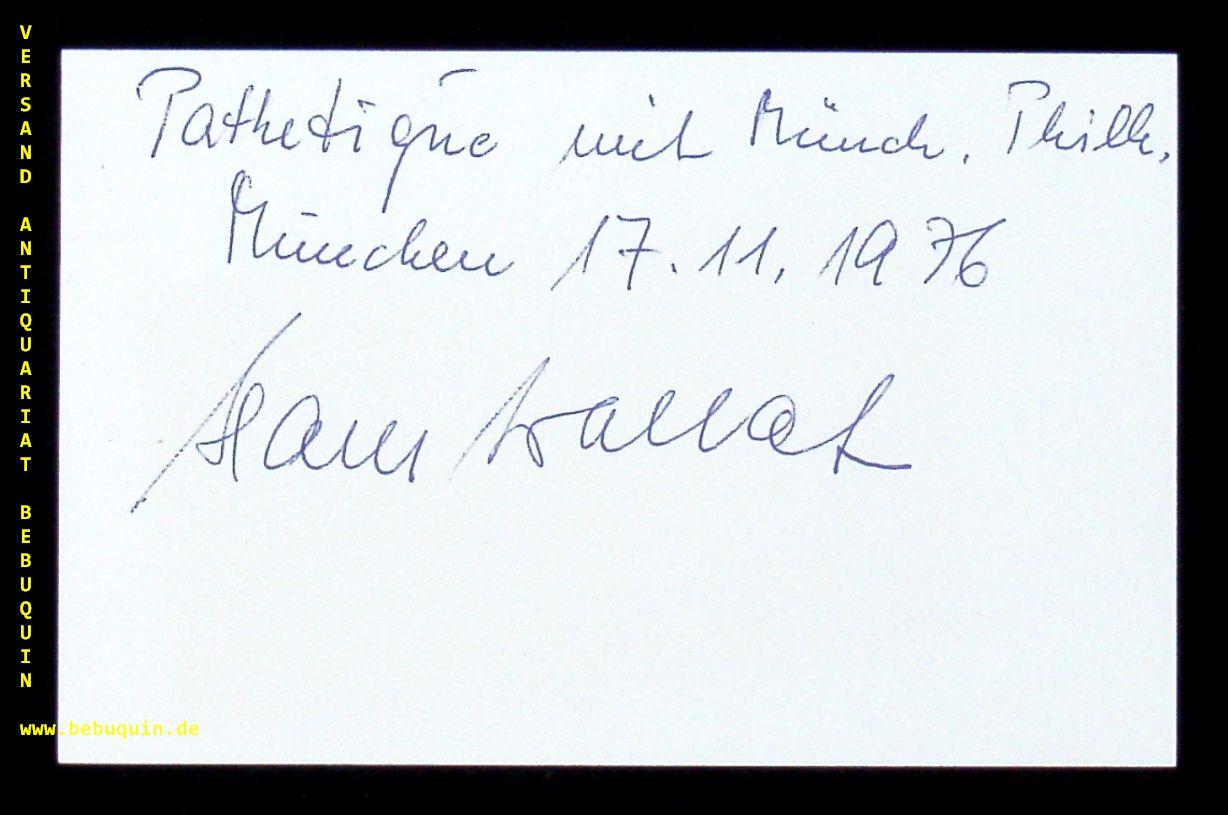 VERSAND ANTIQUARIAT BEBUQUIN
Pathetique mit Münch. Philh.
München 17.11.1976
Hans Wallat
www.bebuquin.de